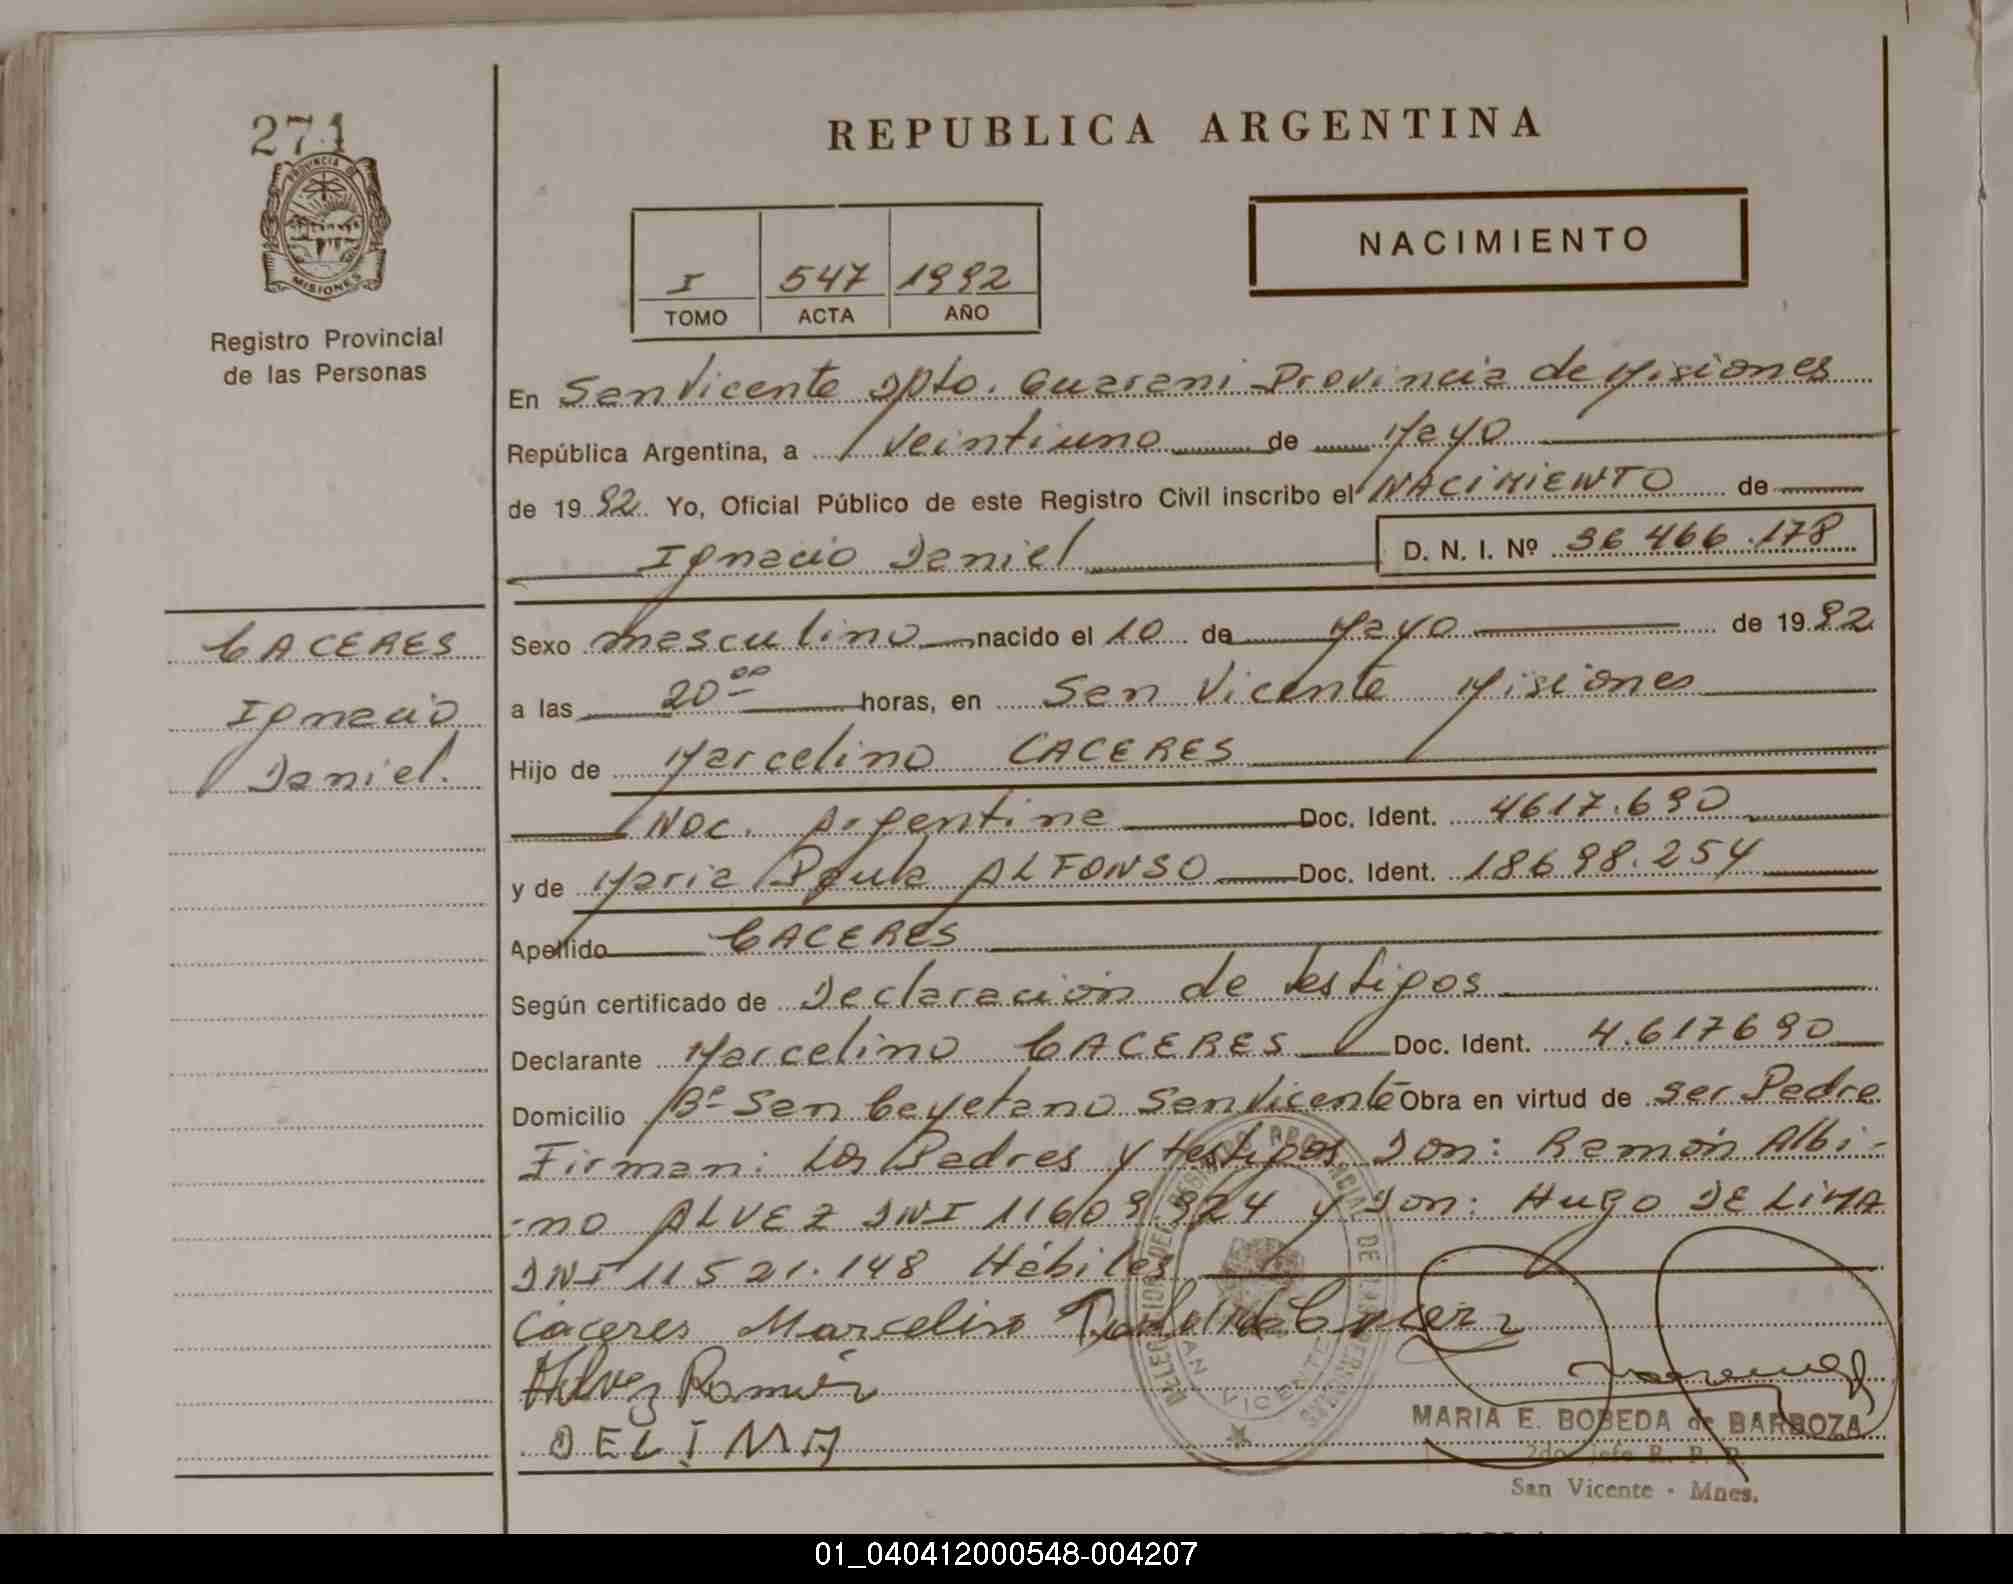 271
PROVINCIA DE
MISIONES
Registro Provincial
de las Personas
CACERES
Ignacio
Daniel.
REPUBLICA ARGENTINA
I 547 1992
TOMO ACTA AÑO
NACIMIENTO
En San Vicente Dpto. Guarani Provincia de Misiones
República Argentina, a veintiuno de Mayo
de 1992. Yo, Oficial Público de este Registro Civil inscribo el NACIMIENTO de
Ignacio Daniel D. N. I. Nº 36 466.178
Sexo masculino nacido el 10 de Mayo de 1992
a las 20 00 horas, en San Vicente Misiones
Hijo de Marcelino CACERES
Nac. Argentina Doc. Ident. 4617.690
y de Maria Paula ALFONSO Doc. Ident. 18698.254
Apellido CACERES
Según certificado de Declaración de testigos
Declarante Marcelino CACERES Doc. Ident. 4.617690
Domicilio Bº San Cayetano San Vicente Obra en virtud de ser Padre
Firman: Los Padres y testigos Don: Ramón Albi-
-no ALVEZ DNI 11609.924 y Don: Hugo DE LIMA
DNI 11521.148 Hábiles
Caceres Marcelino
Alvez Ramón
DELIMA
MARIA E. BOBEDA de BARBOZA
2do Jefe R. P. P.
San Vicente - Mnes.
DELEGACION DEL REGISTRO PROVINCIAL DE LAS PERSONAS
SAN VICENTE
01_040412000548-004207